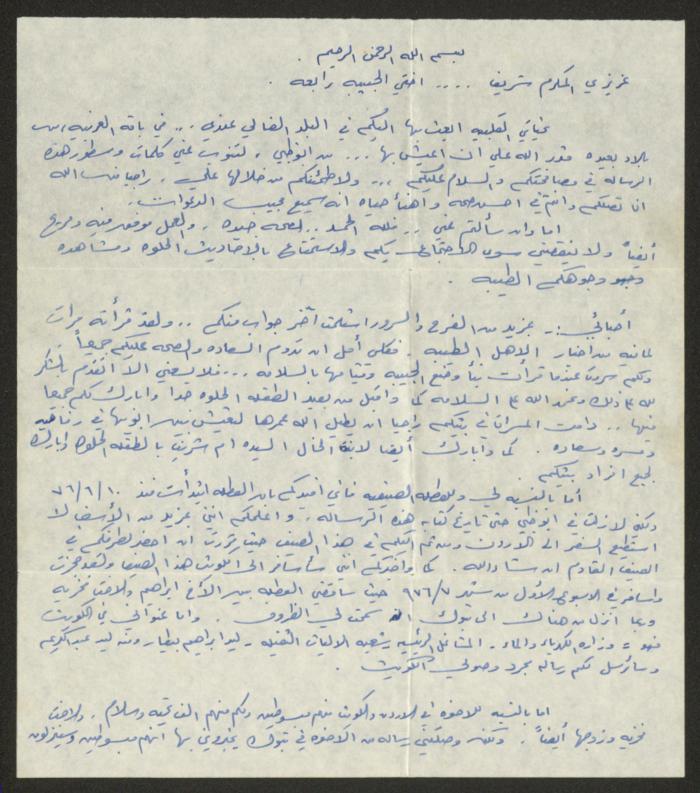 بسم الله الرحمن الرحيم .
عزيزي المكرم شريف .... اختي الحبيبه رابعه .
تحياتي القلبيه ابعث بها اليكم في البلد الغالي .. في
بلاد بعيده قدر الله علي ان اعيش بها ... من ابوظبي ، لتنوب عني كلمات وسطور هذه
الرساله في مصافحتكم والسلام عليكم ... ولاطمئنكم من خلالها علي . راجيا من الله
ان تصلكم وانتم في احسن صحه واهنأ حياه انه سميع مجيب الدعوات .
اما وان سألتم عني .. فلله الحمد .. بصحه جيده . والعمل موفق فيه ومرتاح
أيضاً ولا ينقصني سوى الاجتماع بكم والاستمتاع بالاحاديث الحلوه ومشاهده
وجوهكم الطيبه .
أحبائي :- بمزيد من الفرح والسرور استلمت آخر جواب منكم .. ولقد قرأته مرات
لما فيه من اخبار الاهل الطيبه . فكلي أمل ان تدوم السعاده والصحه عليكم جميعاً .
وكم سررت عندما قرأت نبأ وضع الحبيبه وقيامها بالسلامه ... فلا يسعني الا أن اتقدم بالشكر
لله على ذلك وحمد الله على السلامه كما واقبل من بعيد الطفله الحلوه جدا وابارك لكم جميعا
فيها .. دامت المسرات في بيتكم راجيا ان يطيل الله عمرها لتعيش بين ابويها في رفاهيه
ومسره وسعاده . كما وأبارك أيضا لابنة الخال السيده ام شريف بالطفله الحلوه وابارك
لجميع افراد بيتكم
أما بالنسبه لي وللعطله الصيفيه فاني افيدكم بان العطله ابتدأت منذ ٧٦/٦/١٠
ولكني لازلت في ابوظبي حتى تاريخ كتابه هذه الرساله . واعلمكم انني بمزيد من الأسف لا
استطيع السفر الى الاردن ومن ثم اليكم في هذا الصيف حيث قررت ان احضر لطرفكم في
الصيف القادم ان شاء الله . كما واخبركم انني سأسافر الى الكويت هذا الصيف ولقد حجزت
واسافر في الاسبوع الأول من شهر ٩٧٦/٧ حيث سأقضي العطله بين الأخ ابراهيم والاخت فخريه
وربما انزل من هناك الى تبوك ان سمحت لي الظروف . واما عنواني في الكويت
فهو :- وزاره الكهرباء والماء . المشاغل الرئيسيه . ليد ابراهيم ومنه ليد عبدالكريم
وسأرسل لكم رساله بمجرد وصولي الكويت .
اما بالنسبه للاخوه في الاردن والكويت فهم مبسوطين ولكم منهم الف تحيه وسلام . والاخت
فخريه وزوجها أيضاً . ولكن وصلتني رساله من الاخوه في تبوك يخبروني بها انهم مبسوطين وسينزلون